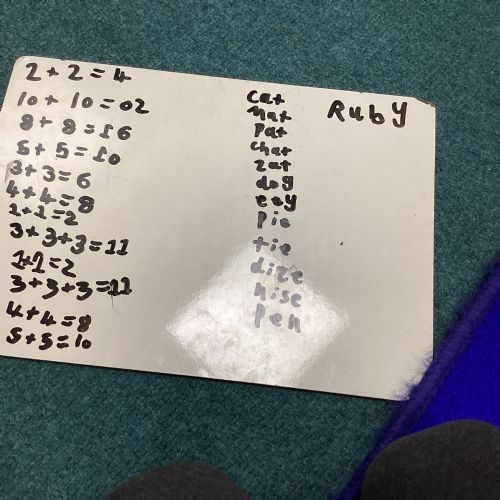 2 + 2 = 4
10 + 10 = 02
8 + 8 = 16
5 + 5 = 10
3 + 3 = 6
4 + 4 = 8
1 + 1 = 2
3 + 3 + 3 = 11
1 + 1 = 2
3 + 3 + 3 = 11
4 + 4 = 8
5 + 5 = 10
cat
mat
pat
chat
zat
dog
eoy
pie
tie
dize
nise
pen
Ruby